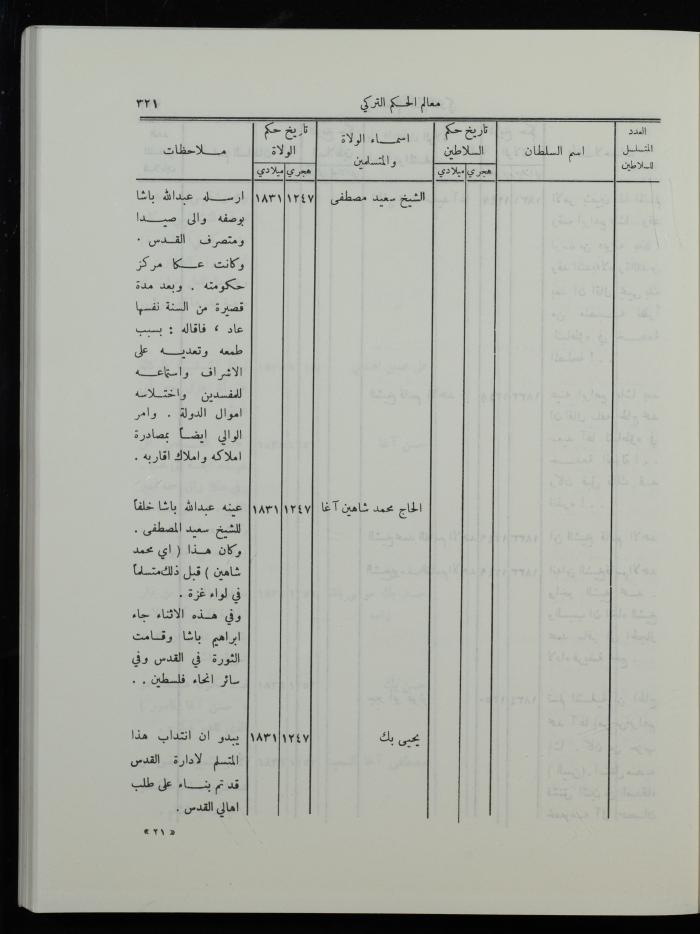 معالم الحكم التركي ٣٢١
العدد المتسلسل للسلاطين
اسم السلطان
تاريخ حكم السلاطين
هجري ميلادي
اسماء الولاة والمتسلمين
تاريخ حكم الولاة
هجري ميلادي
ملاحظات
الشيخ سعيد مصطفى ١٢٤٧ ١٨٣١ ارسله عبدالله باشا
بوصفه والى صيدا
ومتصرف القدس .
وكانت عكا مركز
حكومته . وبعد مدة
قصيرة من السنة نفسها
عاد ، فاقاله : بسبب
طمعه وتعديه على
الاشراف واستماعه
للمفسدين واختلاسه
اموال الدولة . وامر
الوالي ايضاً بمصادرة
املاكه واملاك اقاربه .
الحاج محمد شاهين آغا ١٢٤٧ ١٨٣١ عينه عبدالله باشا خلفاً
للشيخ سعيد المصطفى .
وكان هذا ( اي محمد
شاهين ) قبل ذلك متسلماً
في لواء غزة .
وفي هذه الاثناء جاء
ابراهيم باشا وقامت
الثورة في القدس وفي
سائر انحاء فلسطين . .
يحيى بك ١٢٤٧ ١٨٣١ يبدو ان انتداب هذا
المتسلم لادارة القدس
قد تم بناء على طلب
اهالي القدس .
« ٢١ »